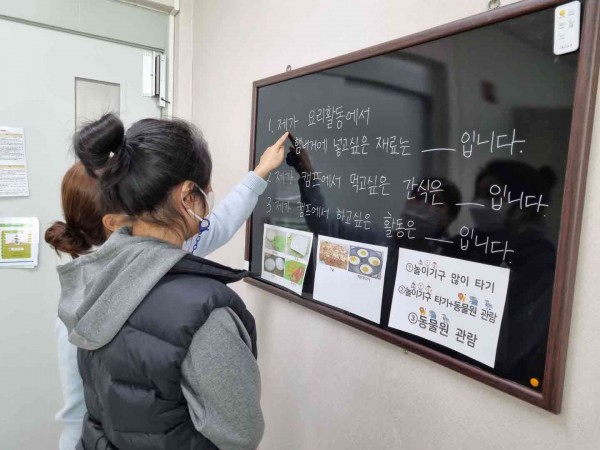 1. 제가 요리활동에서
햄버거에 넣고싶은 재료는 ___ 입니다.
2. 제가 캠프에서 먹고싶은 간식은 ___ 입니다.
3. 제가 캠프에서 하고싶은 활동은 ___ 입니다.
①놀이기구 많이 타기
②놀이기구 타기+동물원 관람
③동물원 관람